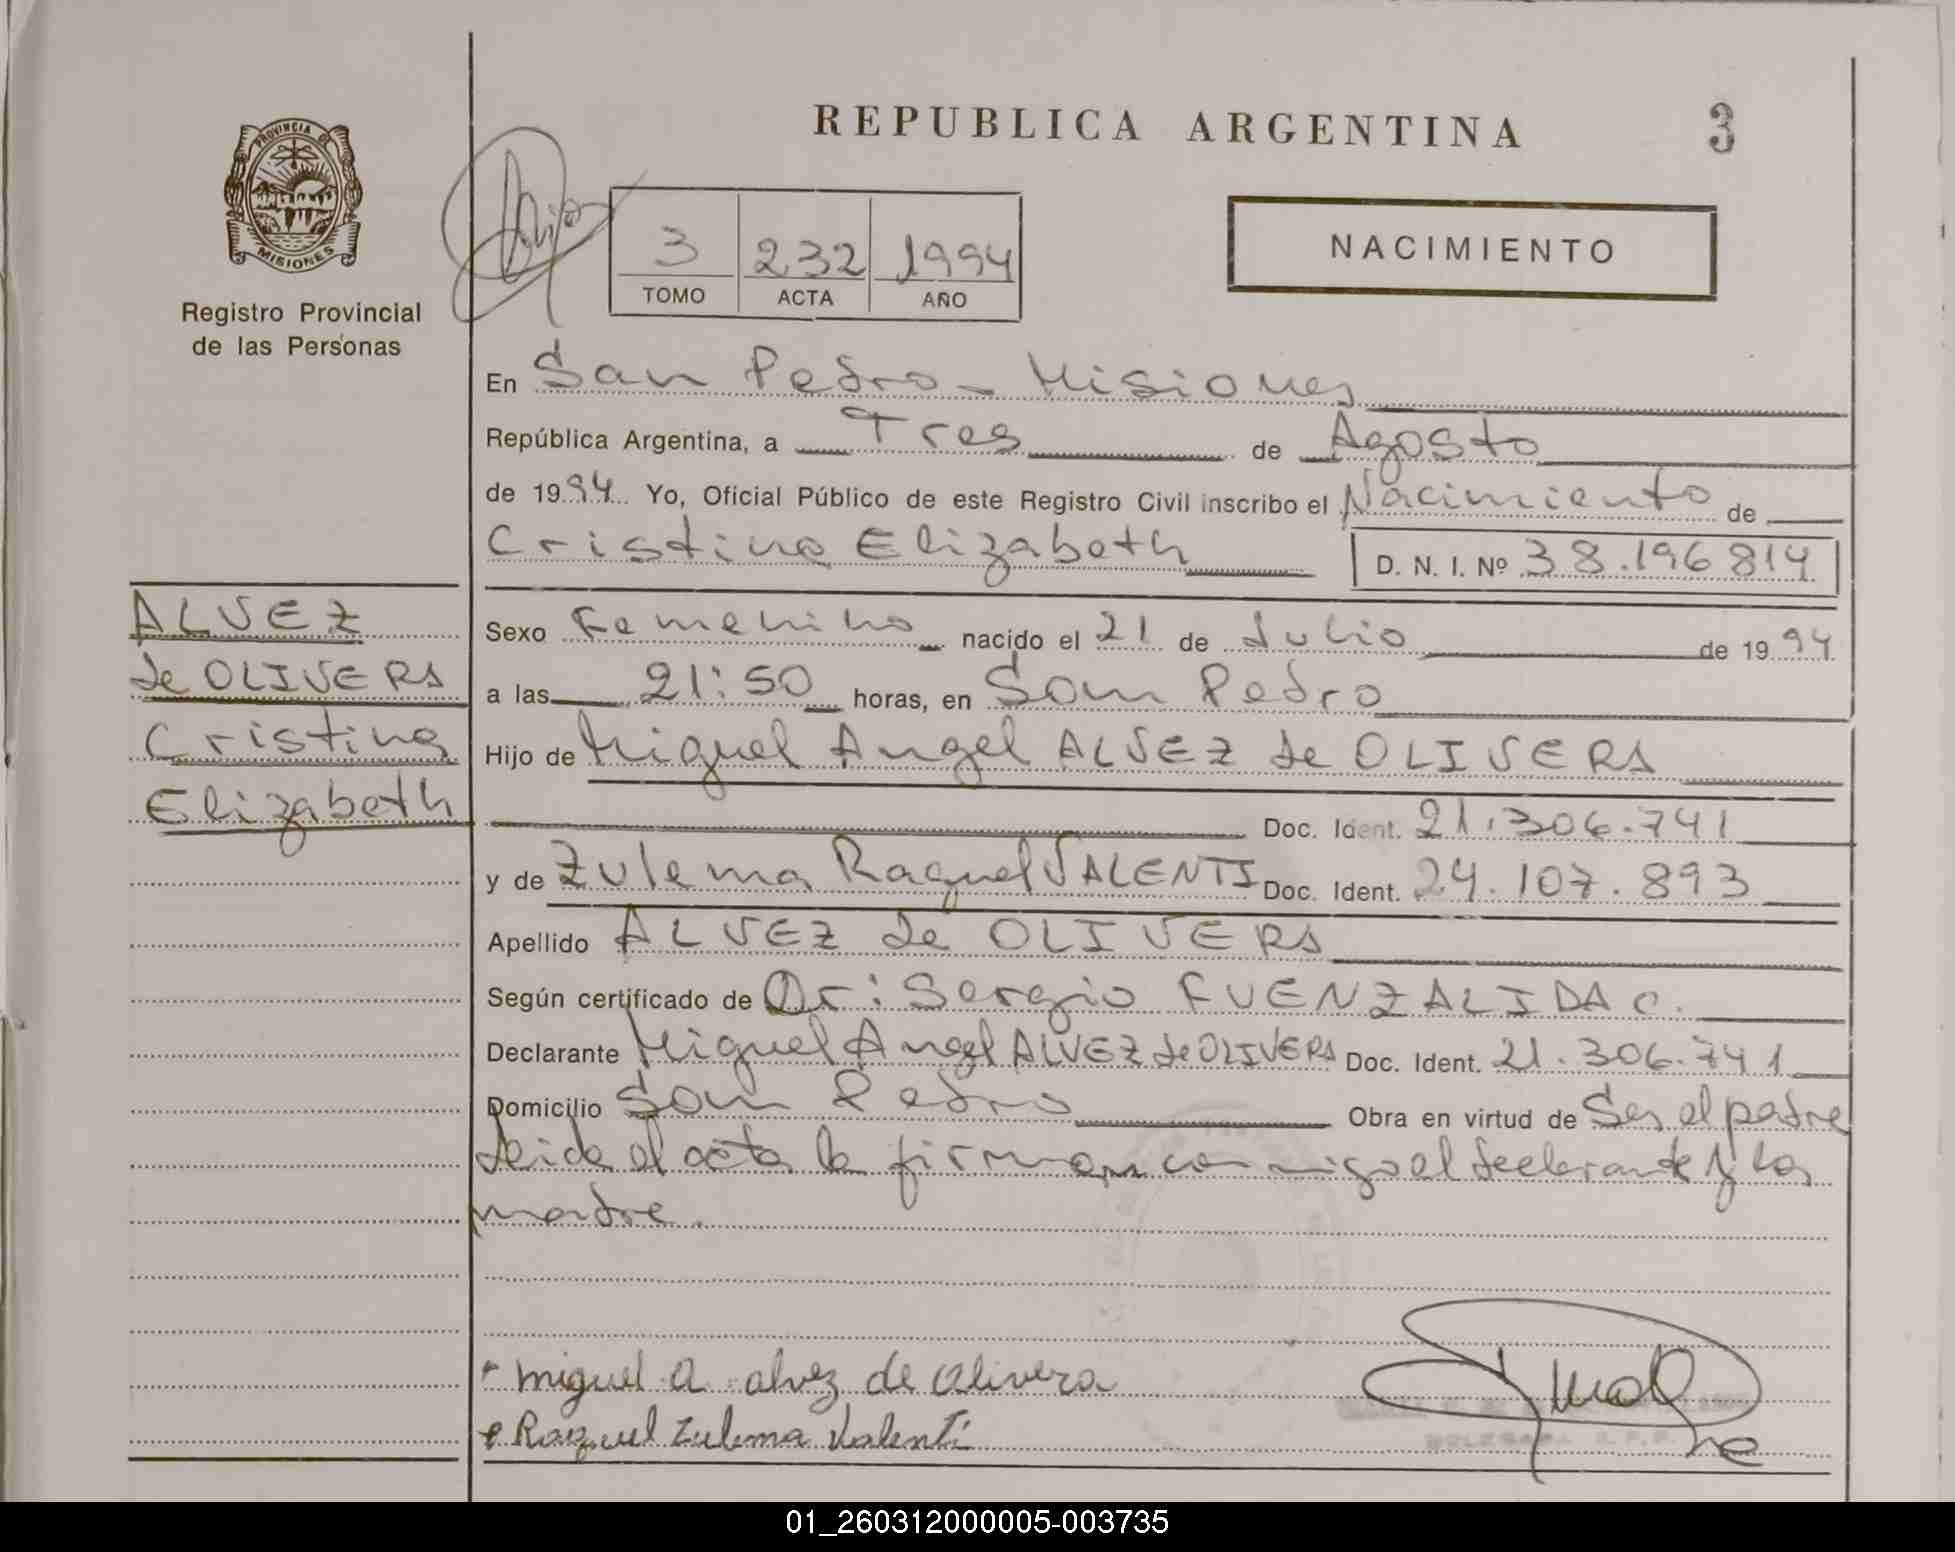 REPUBLICA ARGENTINA
3
PROVINCIA DE
MISIONES
Registro Provincial
de las Personas
3 232 1994
TOMO ACTA AÑO
NACIMIENTO
En San Pedro - Misiones
República Argentina, a Tres de Agosto
de 1994 Yo, Oficial Público de este Registro Civil inscribo el Nacimiento de
Cristina Elizabeth D. N. I. Nº 38.196814
ALVEZ
de OLIVERA
Cristina
Elizabeth
Sexo Femenino nacido el 21 de Julio de 1994
a las 21:50 horas, en San Pedro
Hijo de Miguel Angel ALVEZ de OLIVERA
Doc. Ident. 21.306.741
y de Zulema Raquel VALENTI Doc. Ident. 24.107.893
Apellido ALVEZ de OLIVERA
Según certificado de Dr: Sergio FUENZALIDA C.
Declarante Miguel Angel ALVEZ de OLIVERA Doc. Ident. 21.306.741
Domicilio San Pedro Obra en virtud de Ser el padre
Leida el acta la firman conmigo el declarante y la
madre.
Miguel A alvez de Olivera
Raquel Zulema Valenti
01_260312000005-003735